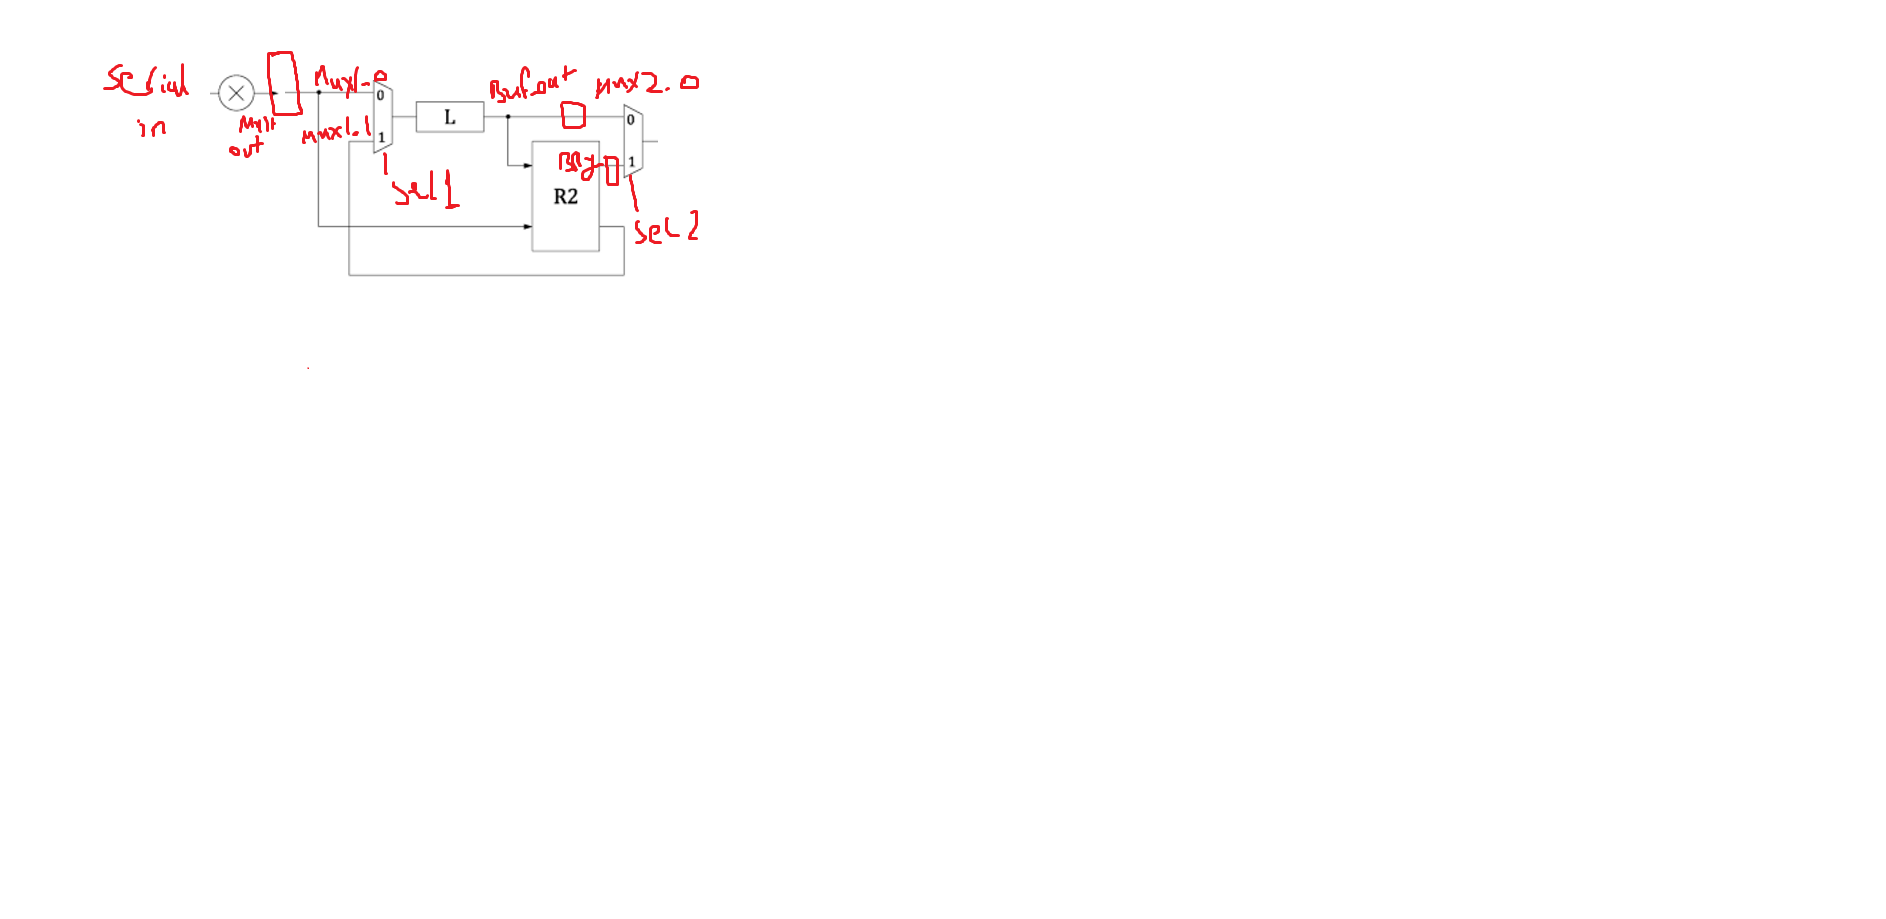 Serial
in
Mult
out
Mux1.0
mux1.1
0
1
sel1
L
Buf_out
mux2.0
0
1
R2
sel2